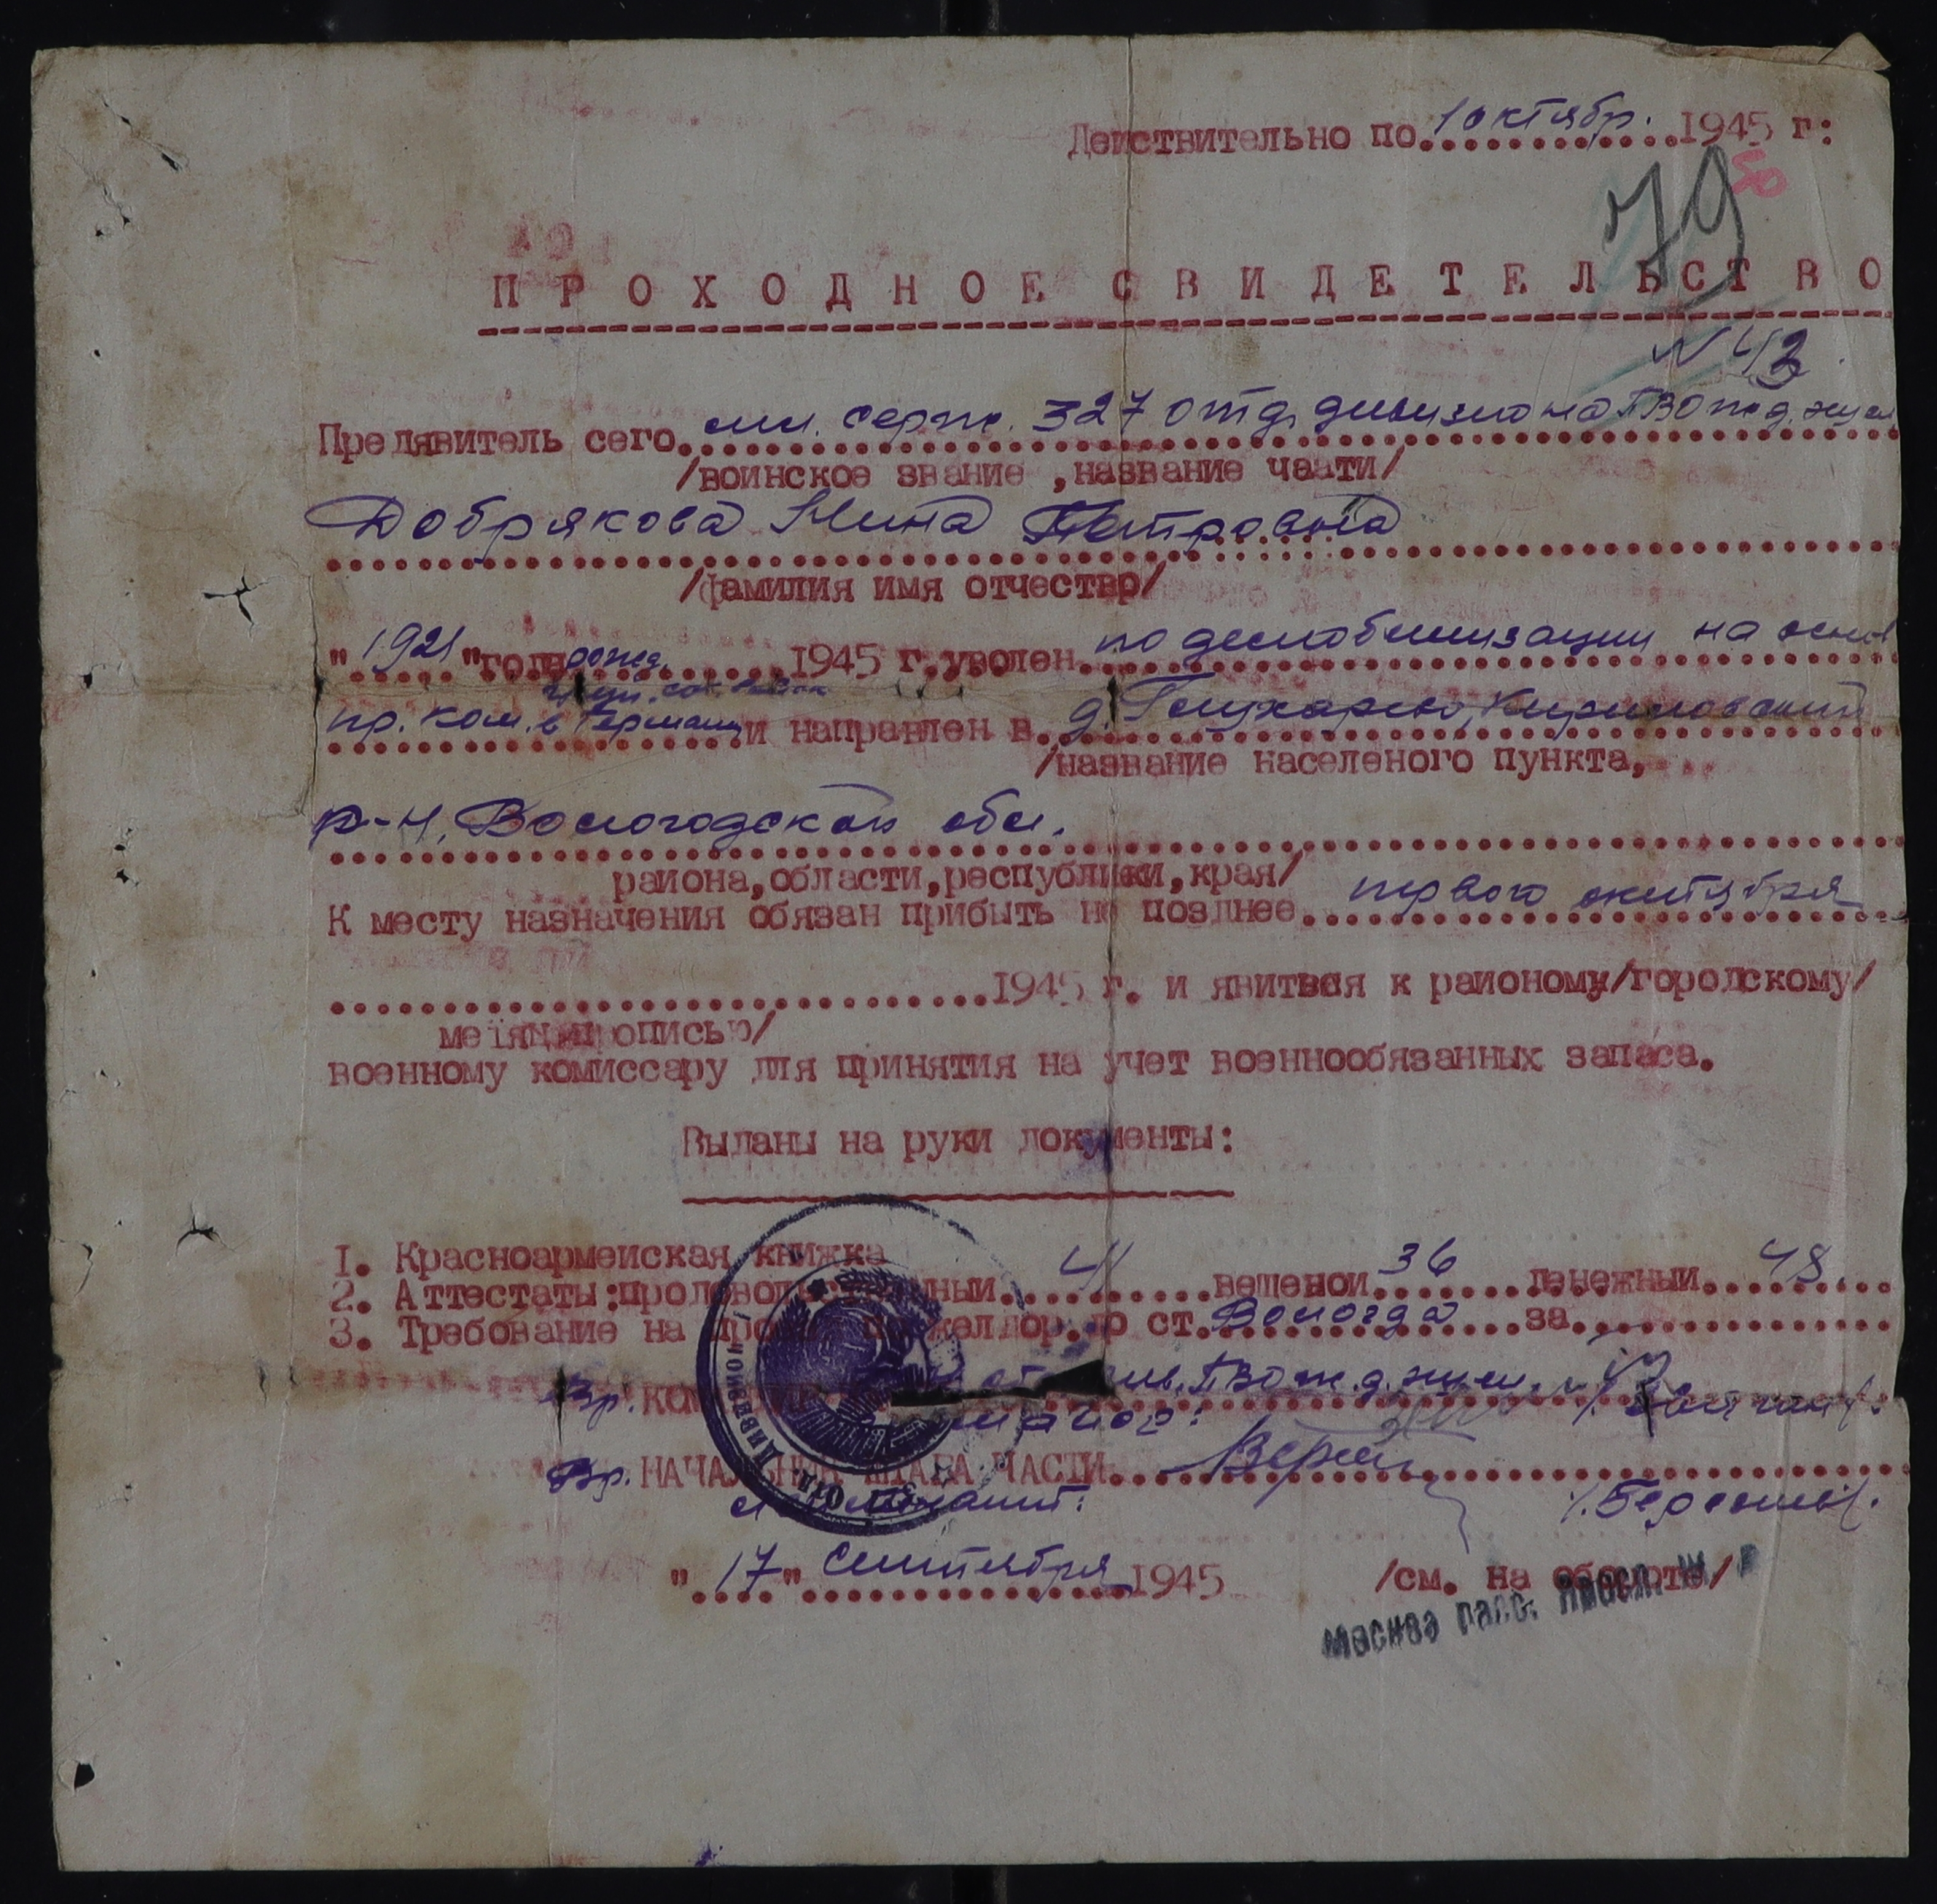 Действительно по 1 октябр. 1945 г:
79
50
ПРОХОДНОЕ СВИДЕТЕЛЬСТВО
N 43
Предявитель сего мл. серж. 327 отд. дивизиона ПВО ж.д. эшел
/воинское звание ,название чаати/
Добрякова Нина Петровна
/фамилия имя отчество/
"1921" года рожд. 1945 г. уволен по демобилизации на основ
груп. сов.
пр. ком. в Германии и направлен в д. Кирилловский
/название населеного пункта,
р-н, Вологодской обл.
района,области,республики,края/
К месту назначения обязан прибыть не позднее первого октября
1945 г. и явиться к раионому/городскому/
прописью/
военному комиссару для принятия на учет военнообязанных запаса.
Выданы на руки документы:
1. Красноармеиская книжка
2. Аттестаты:продовольственный 41 вещевои 36 денежныи 48
3. Требование на жел.дор. до ст. Вологда за
Вр. ПВО ж.д. эшел.
маиор:
Вр. НАЧАЛЬНИК ШТАБА ЧАСТИ
лейтенант:
"17" сентября 1945 /см. на обороте/
Москва пасс.